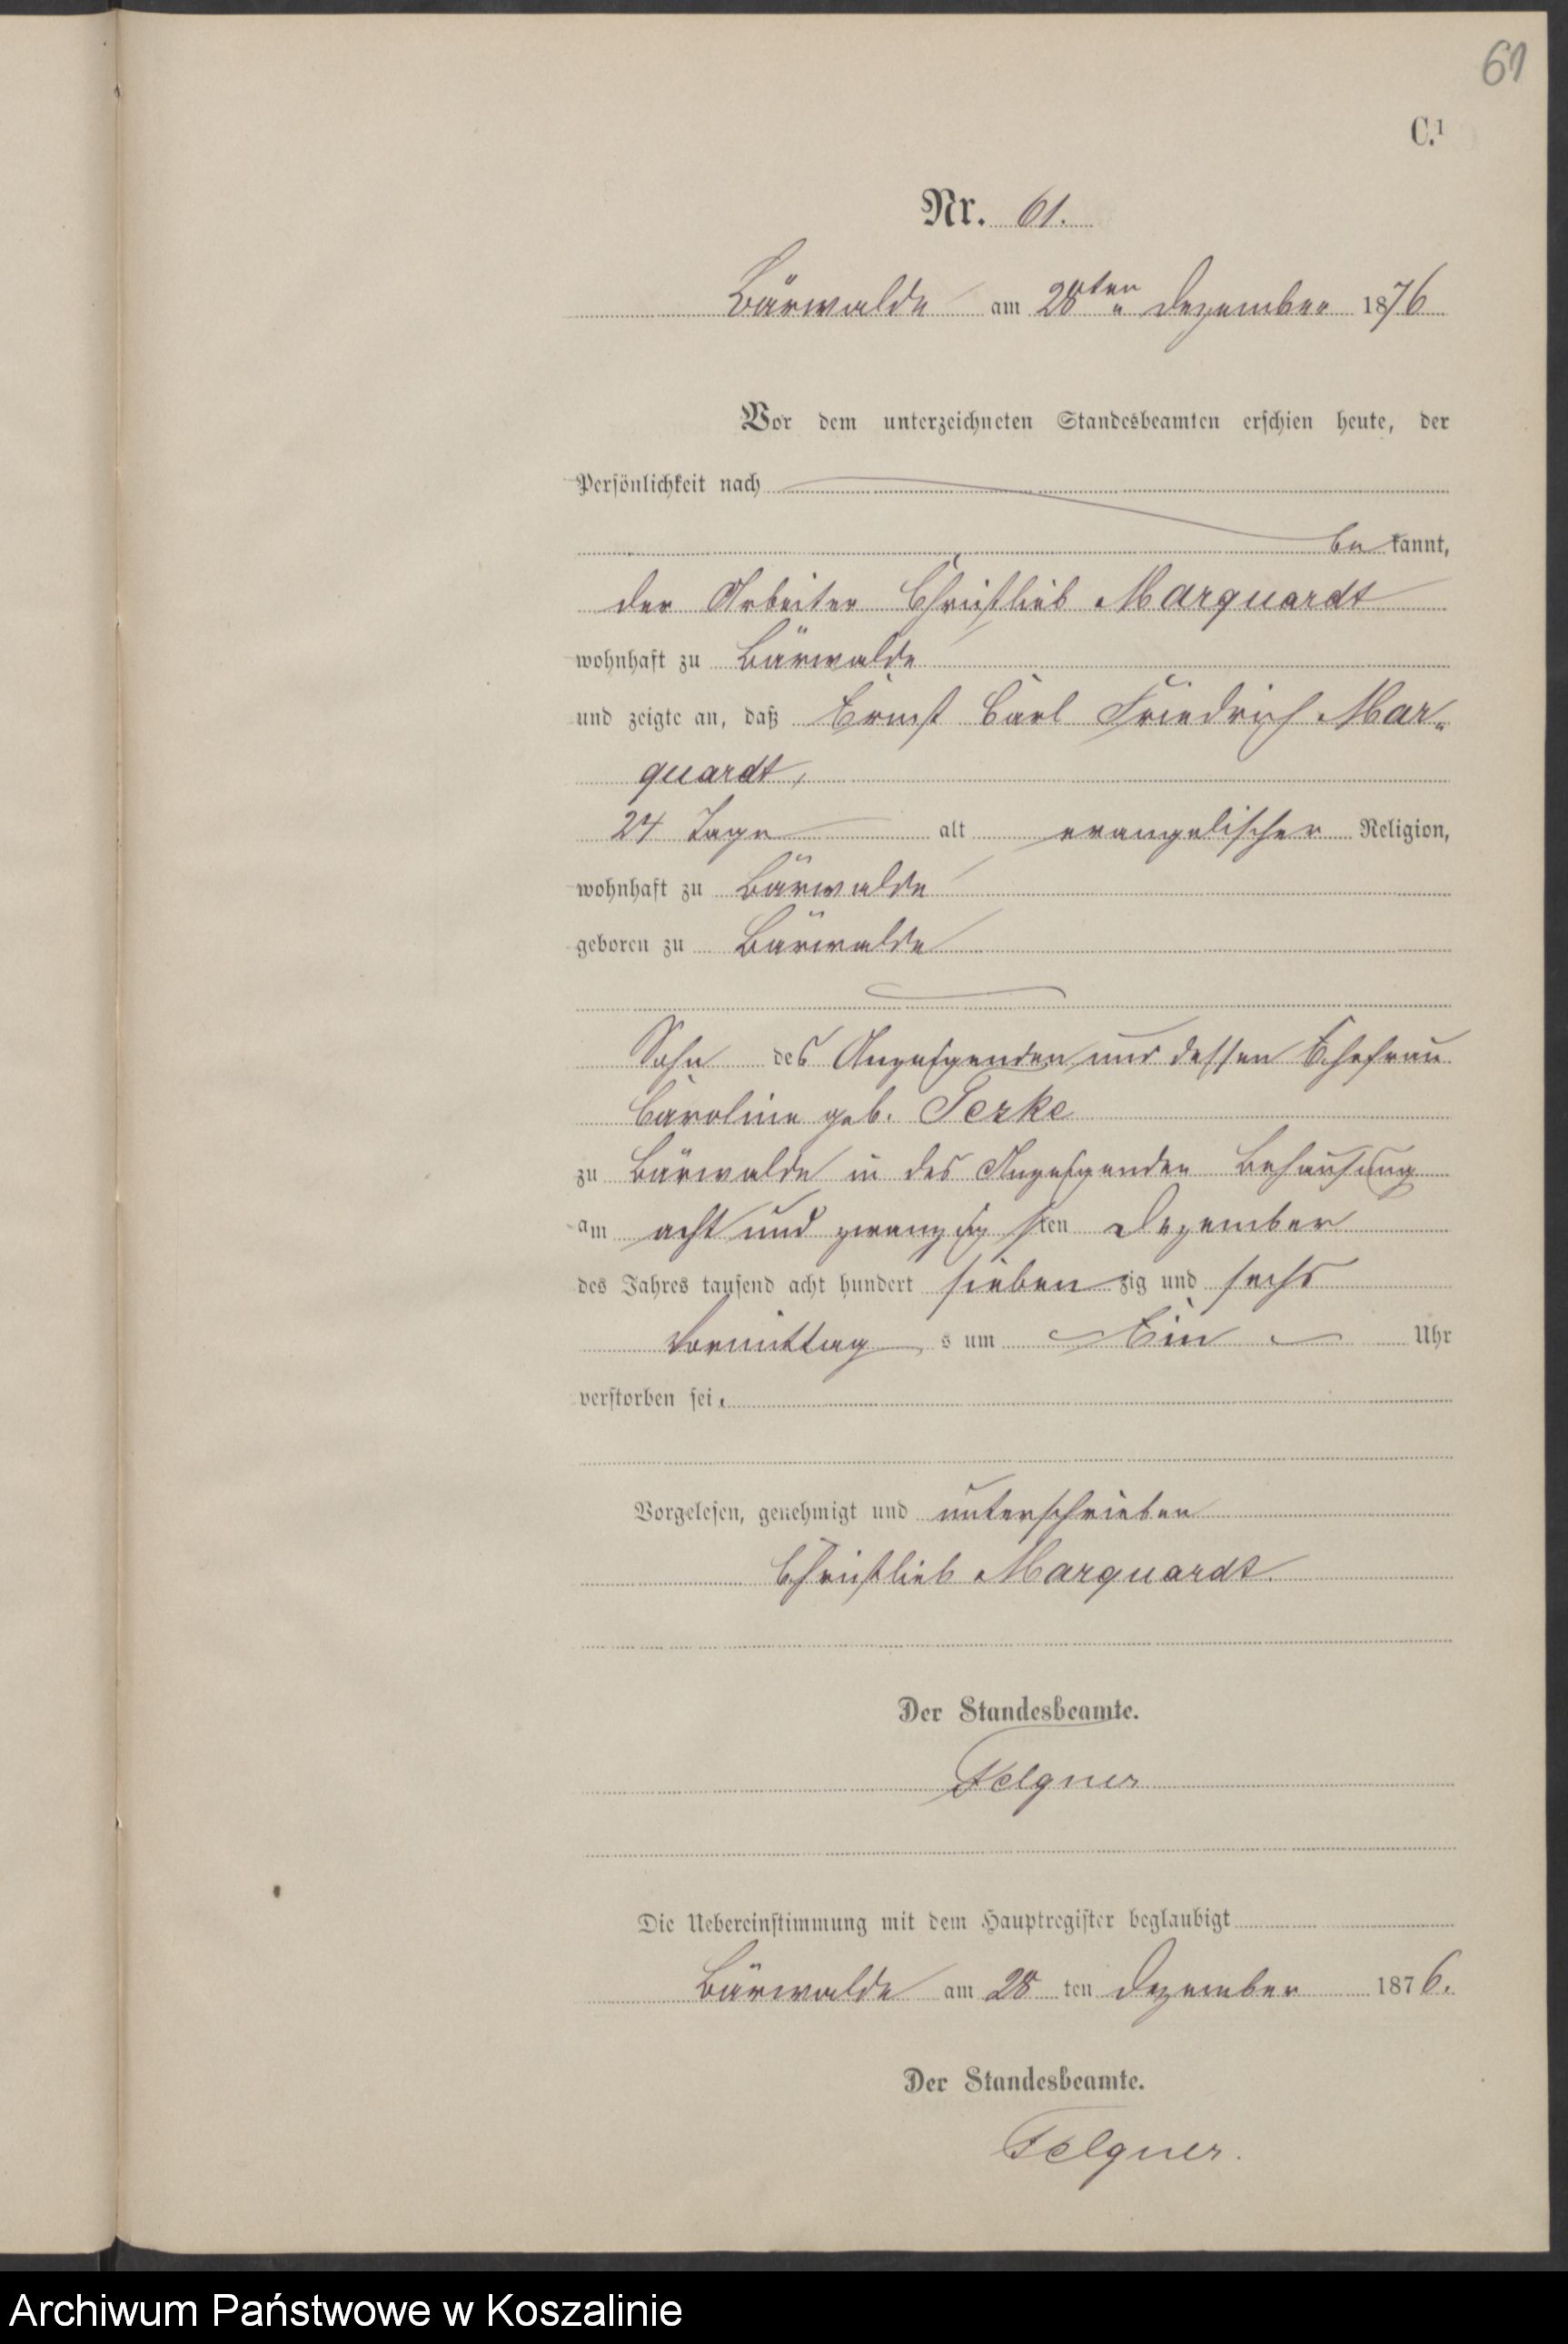 61
C.¹
Nr. 61.
Bärwalde am 28ten Dezember 1876
Vor dem unterzeichneten Standesbeamten erschien heute, der
Persönlichkeit nach
be kannt,
der Arbeiter Christlieb Marquardt
wohnhaft zu Bärwalde
und zeigte an, daß Ernst Carl Friedrich Mar-
quardt,
24 Tage alt evangelischer Religion,
wohnhaft zu Bärwalde
geboren zu Bärwalde
Sohn des Anzeigenden und dessen Ehefrau
Caroline geb. Gerke
zu Bärwalde in des Anzeigenden Behausung
am acht und zwanzigsten Dezember
des Jahres tausend acht hundert siebenzig und sechs
Vormittags um Ein Uhr
verstorben sei.
Vorgelesen, genehmigt und unterschrieben
Christlieb Marquardt.
Der Standesbeamte.
Felgner
Die Uebereinstimmung mit dem Hauptregister beglaubigt
Bärwalde am 28ten Dezember 1876.
Der Standesbeamte.
Felgner.
Archiwum Państwowe w Koszalinie